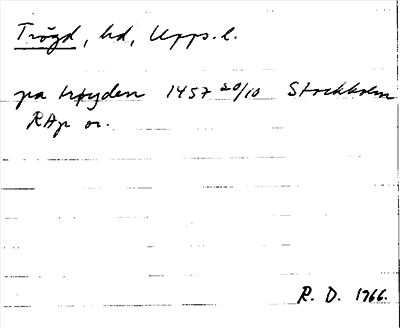 Trögd, hd, Upps. l.
pa trøyden 1457 20/10 Stockholm
RAp or.
R. D. 1966.